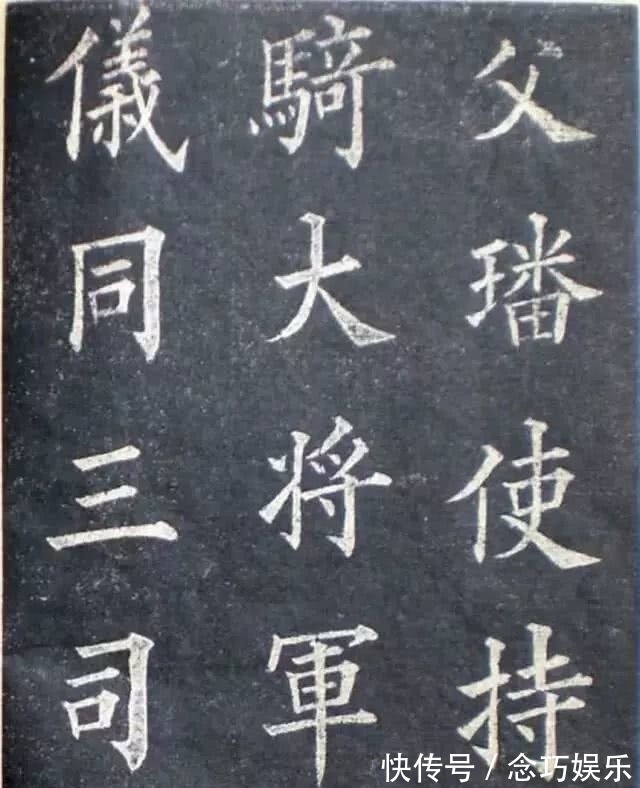 父璠使持
騎大将軍
儀同三司
快传号 / 念巧娱乐